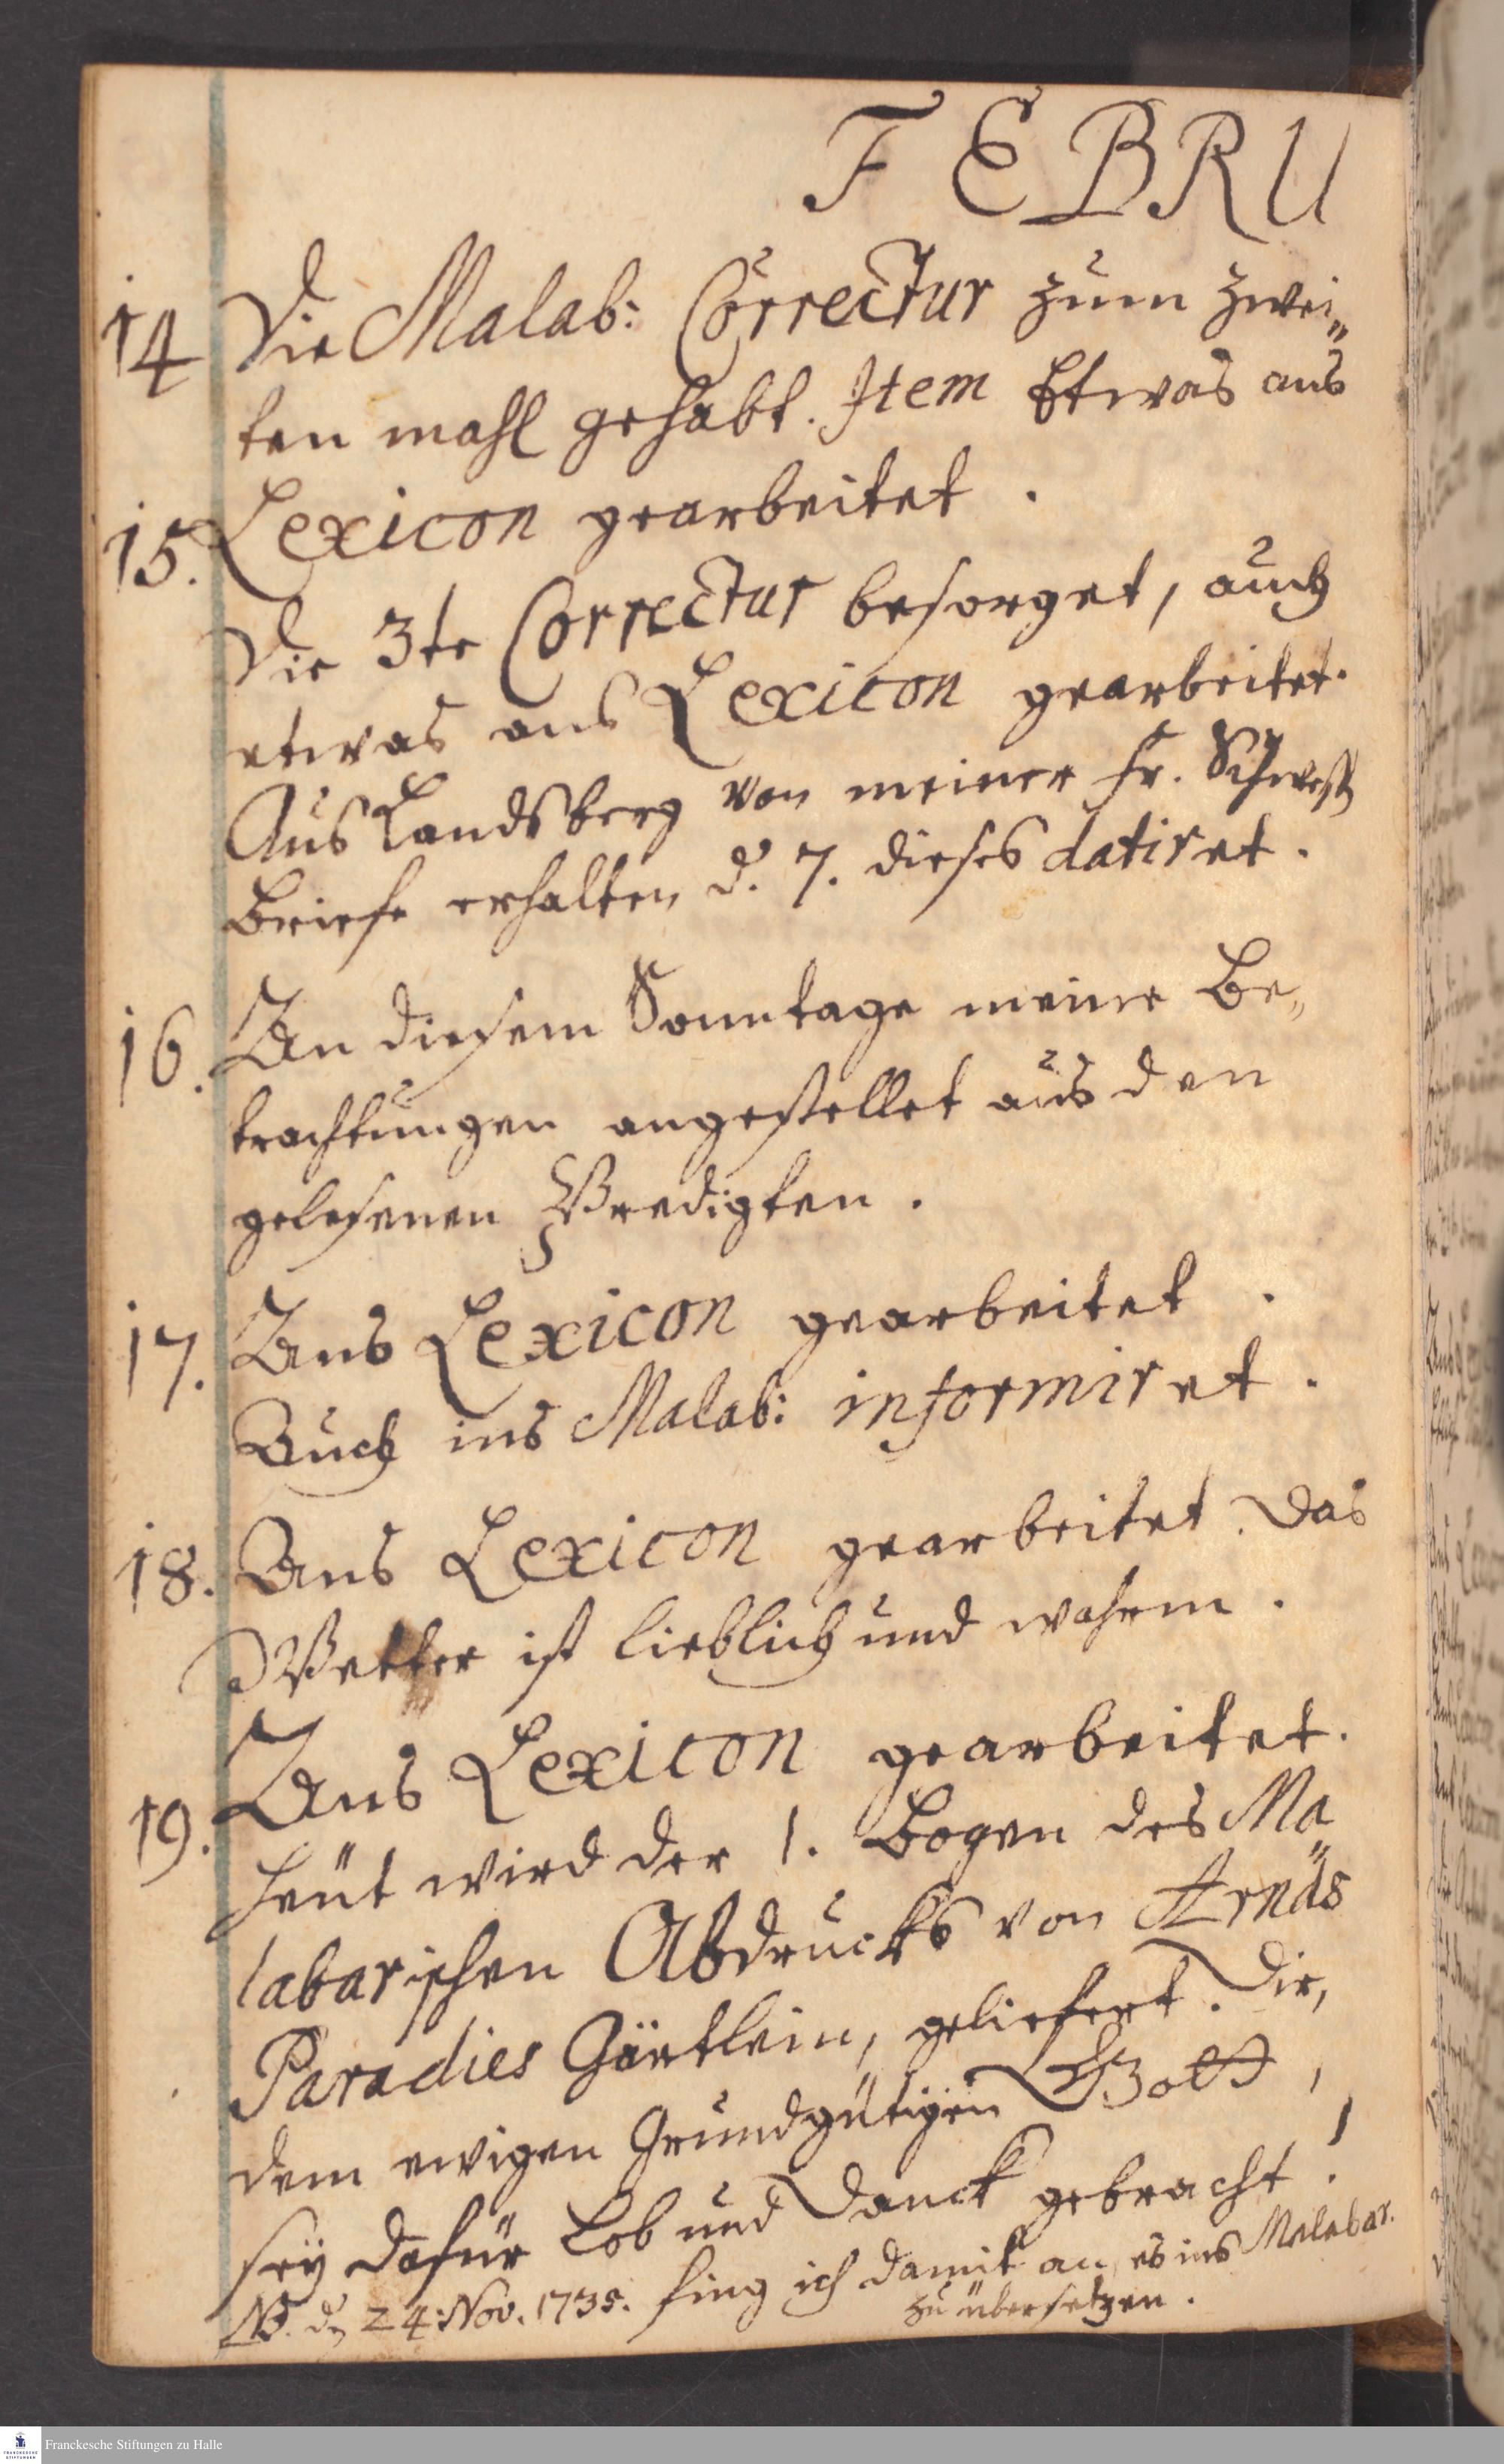 FEBRU
14 Die Malab: Correctur zum zwei„
ten mahl gehabt. Item Etwas ans
Lexicon gearbeitet.
15. Die 3te Correctur besorget, auch
etwas ans Lexicon gearbeitet.
Aus Landsberg von meiner Fr. Schwest
Briefe erhalten d. 7. dieses datiret.
16. An diesem Sonntage meine Be„
trachtungen angestellet aus den
gelesenen Predigten.
17. Ans Lexicon gearbeitet.
Auch ins Malab: informiret.
18. Ans Lexicon gearbeitet. Das
Wetter ist lieblich und wahrm.
19. Ans Lexicon gearbeitet.
Heut wird der 1. Bogen des Ma„
labarischen Abdrucks von Arnds
Paradies Gärtlein, geliefert. Dir,
dem ewigen Grundgütigen GOtt,
sey dafür Lob und Danck gebracht!
NB. d. 24. Nov. 1735. fing ich damit an, es ins Malabar.
zu übersetzen.
Franckesche Stiftungen zu Halle